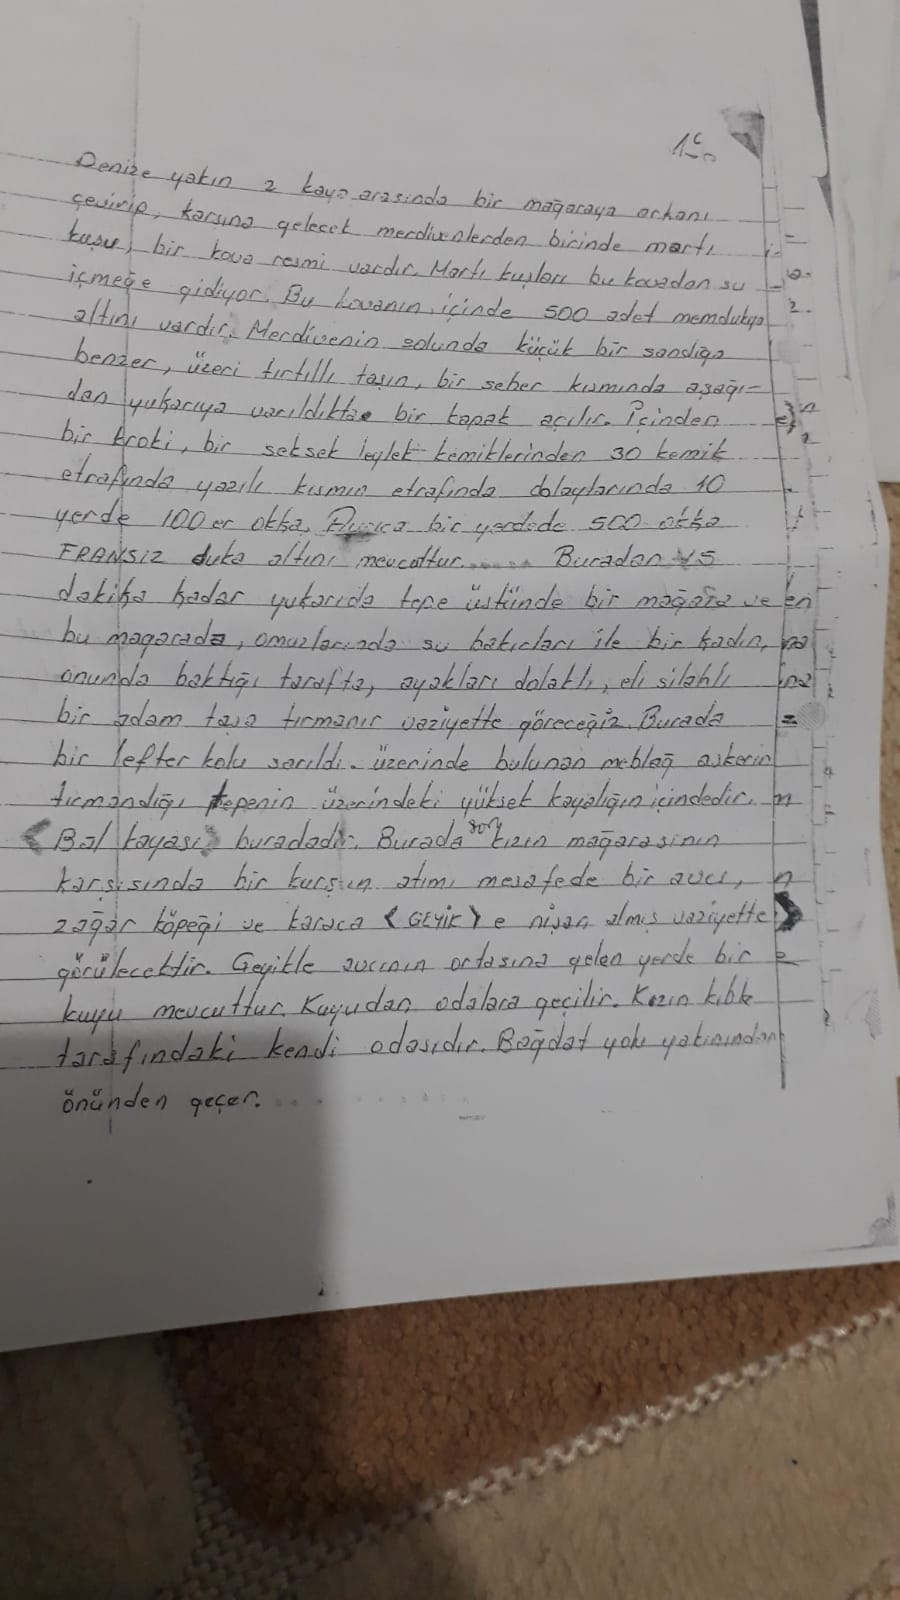 Denize yakın 2 kaya arasında bir mağaraya arkanı
çevirip, karşına gelecek merdivenlerden birinde martı
kuşu, bir kova resmi vardır. Martı kuşları bu kovadan su
içmeğe gidiyor. Bu kovanın içinde 500 adet memduhiye
altını vardır. Merdivenin solunda küçük bir sandığa
benzer, üzeri tırtıllı taşın, bir seber kısmında aşağı-
dan yukarıya varıldıkta bir kapak açılır. İçinden
bir kroki, bir seksek leylek kemiklerinden 30 kemik
etrafında yazılı kısmın etrafında dolaylarında 10
yerde 100er okka, Ayrıca bir yerdede 500 okka
FRANSIZ duka altını mevcuttur...... Buradan 45
dakika kadar yukarıda tepe üstünde bir mağara ve
bu magarada, omuzlarında su bakırları ile bir kadın,
onunda baktığı tarafta, ayakları dolaklı, eli silahlı
bir adam taşa tırmanır vaziyette göreceğiz. Burada
bir lefter kolu sarıldı. üzerinde bulunan meblağ askerin
tırmandığı tepenin üzerindeki yüksek kayalığın içindedir.
<Bal kayası> buradadır. Burada kızın mağarasının
karşısında bir kurşun atımı mesafede bir avcı,
zağar köpeği ve karaca <GEYİK> e nişan almış vaziyette
görülecektir. Geyikle avcının ortasına gelen yerde bir
kuyu mevcuttur. Kuyudan odalara geçilir. Kızın kıble
tarafındaki kendi odasıdır. Bağdat yolu yakınından
önünden geçer.